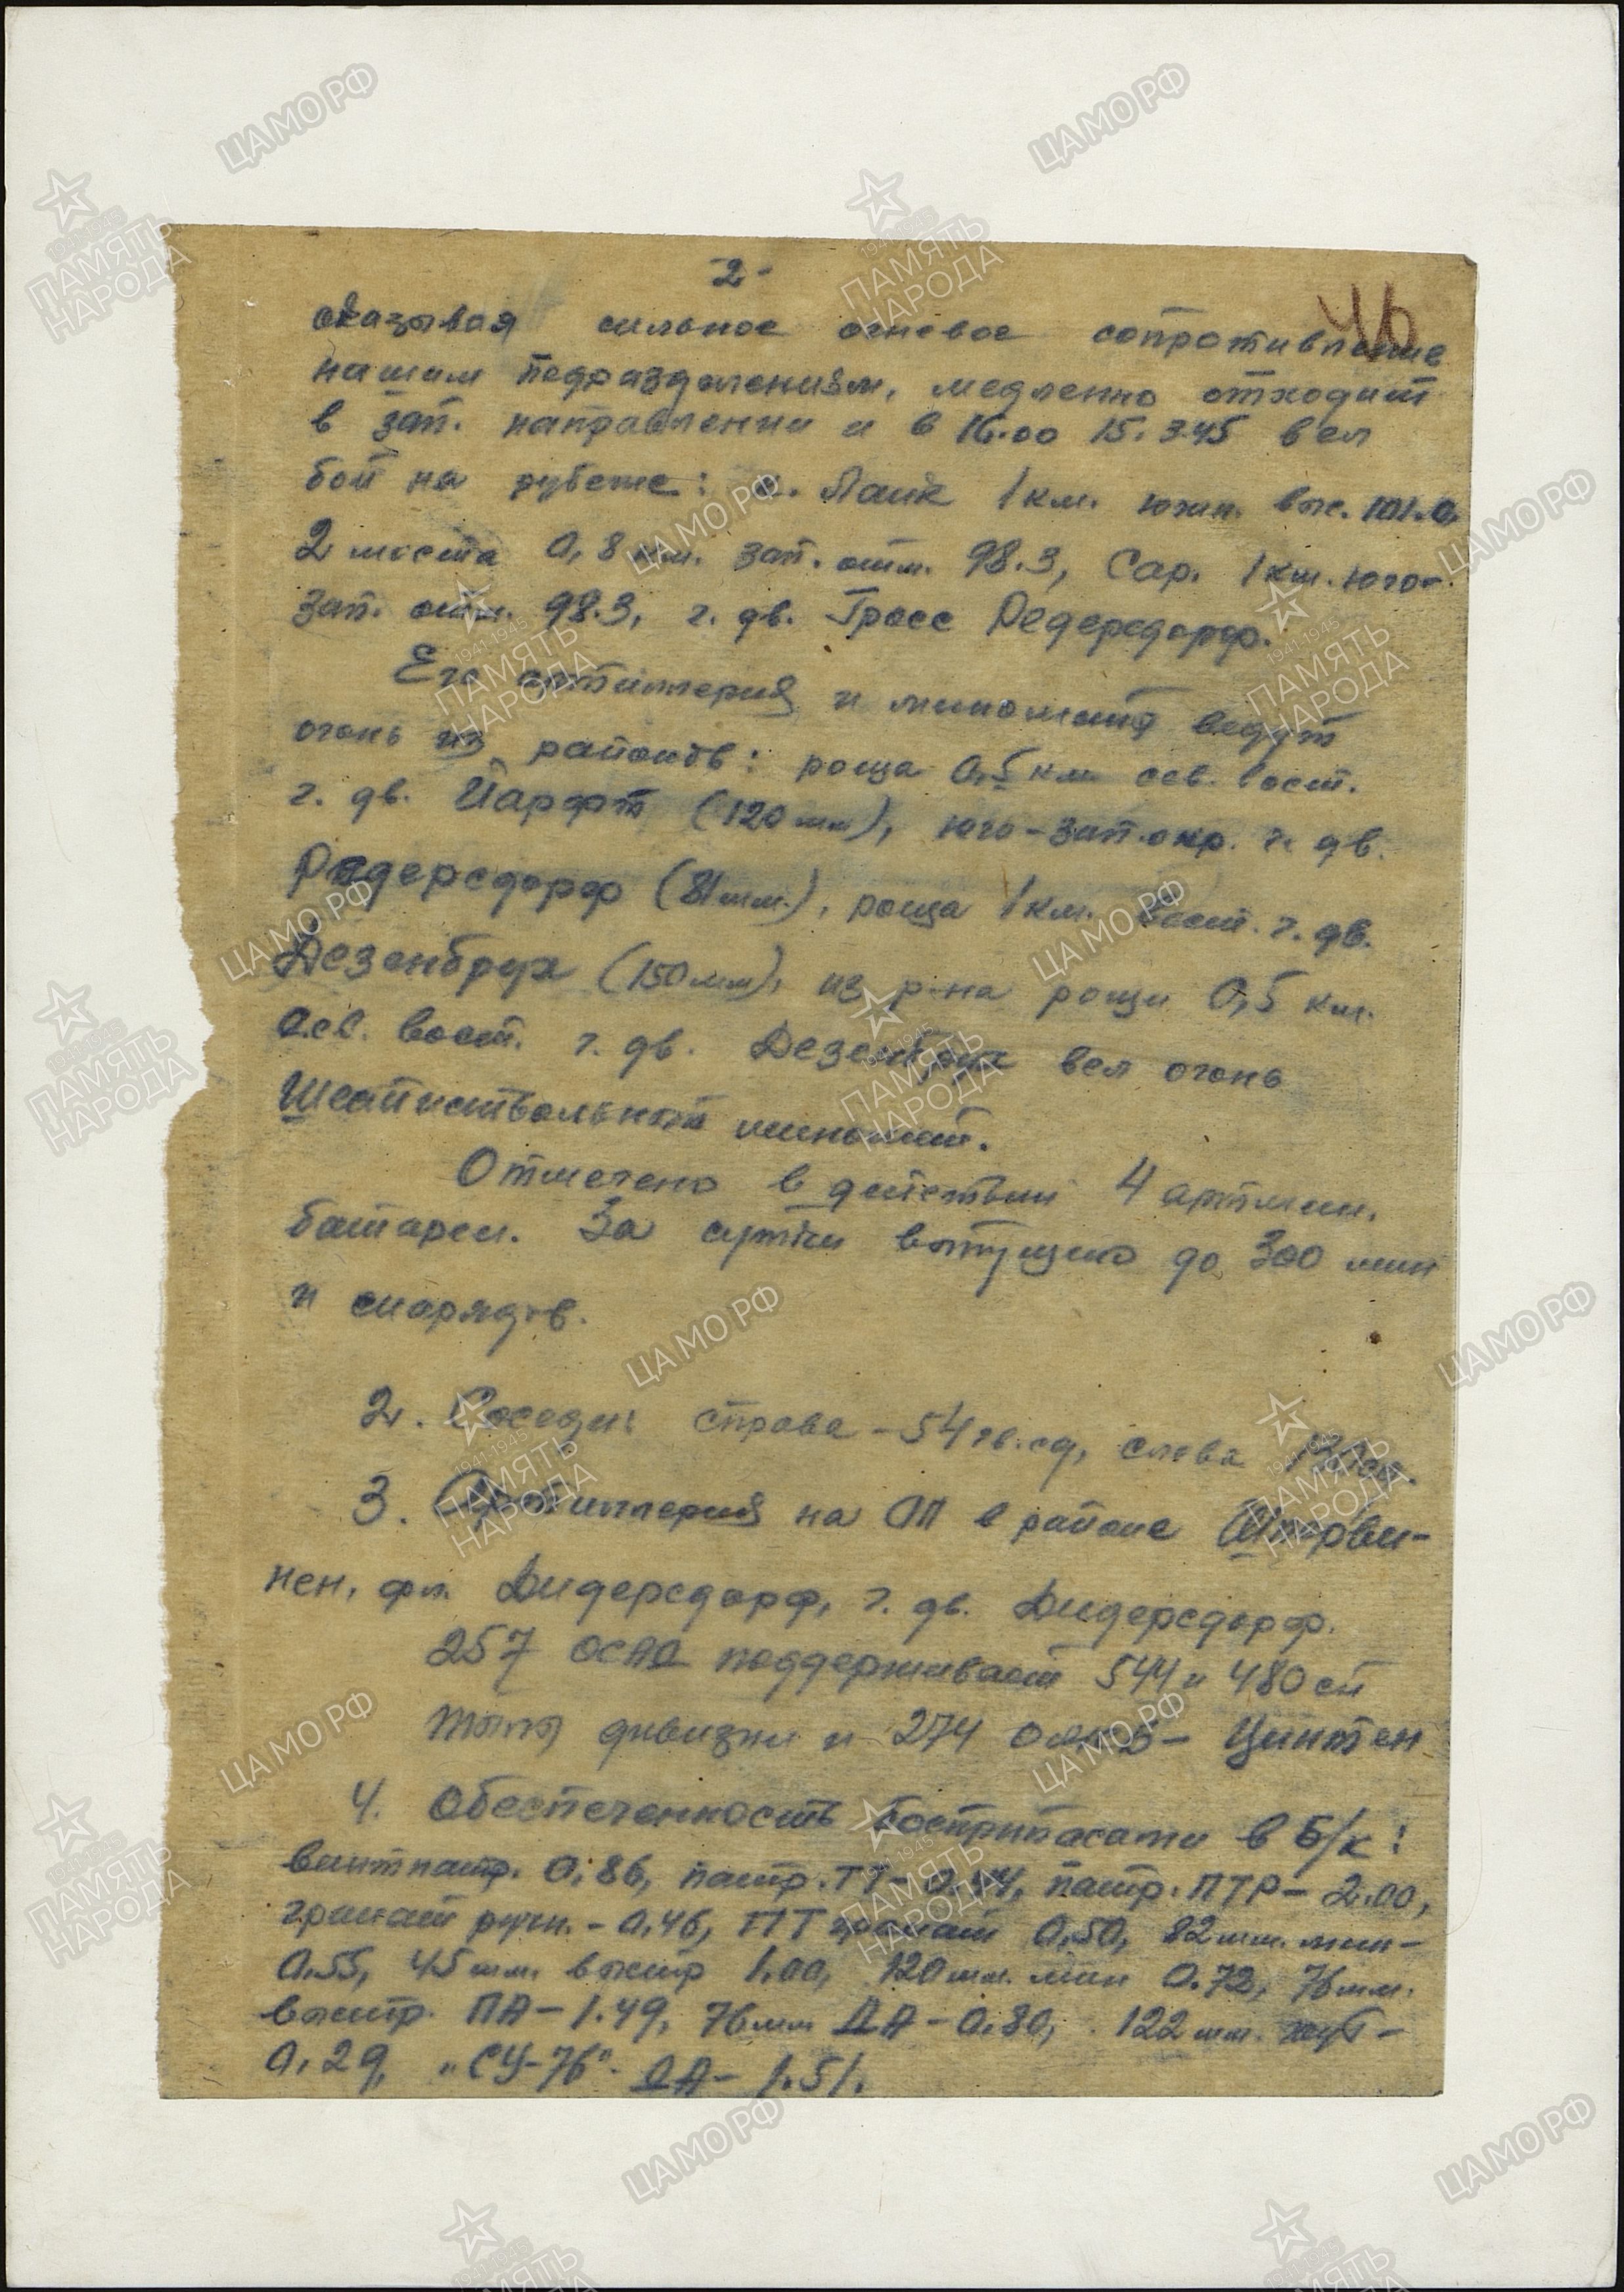 -2-
46
оказывая сильное огневое сопротивление
нашим подразделениям, медленно отходит
в зап. направлении и в 16.00 15.3.45 вел
бой на рубеже: м. Лаик 1 км. южн. выс. 101.0,
2 моста 0,8 км. зап. отм. 98.3, Сар. 1 км. юго-
зап. отм. 98.3, г. дв. Гросс Редерсдорф.
Его артиллерия и минометы ведут
огонь из районов: роща 0,5 км сев. вост.
г. дв. Йарфт (120 мм), юго-зап. окр. г. дв.
Редерсдорф (81мм.), роща 1 км. вост. г. дв.
Дезенбрух (150мм), из р-на рощи 0,5 км.
сев. вост. г. дв. Дезенбрух вел огонь
Шестиствольный миномет.
Отмечено в действии 4 артмин.
батареи. За сутки выпущено до 300 мин
и снарядов.
2. Соседи: справа - 54 гв. сд, слева
3. Артиллерия на ОП в районе Шторви-
нен, фл. Дидерсдорф, г. дв. Дидерсдорф.
257 ОСАД поддерживает 544 и 480 сп
Тылы дивизии и 274 - Цинтен
4. Обеспеченность боеприпасами в Б/к:
винтпатр. 0,86, патр. ТТ - 0,44, патр. ПТР - 2.00,
гранат ручн. - 0,46, ПТ гранат 0,50, 82 мм. мин -
0,55, 45 мм. выстр 1.00, 120 мм. мин 0.72, 76 мм.
выстр. ПА - 1.49, 76 мм ДА - 0.80, 122 мм. гауб -
0,29, „СУ-76“ - ДА - 1.51.
ЦАМО РФ
1941-1945
ПАМЯТЬ
НАРОДА